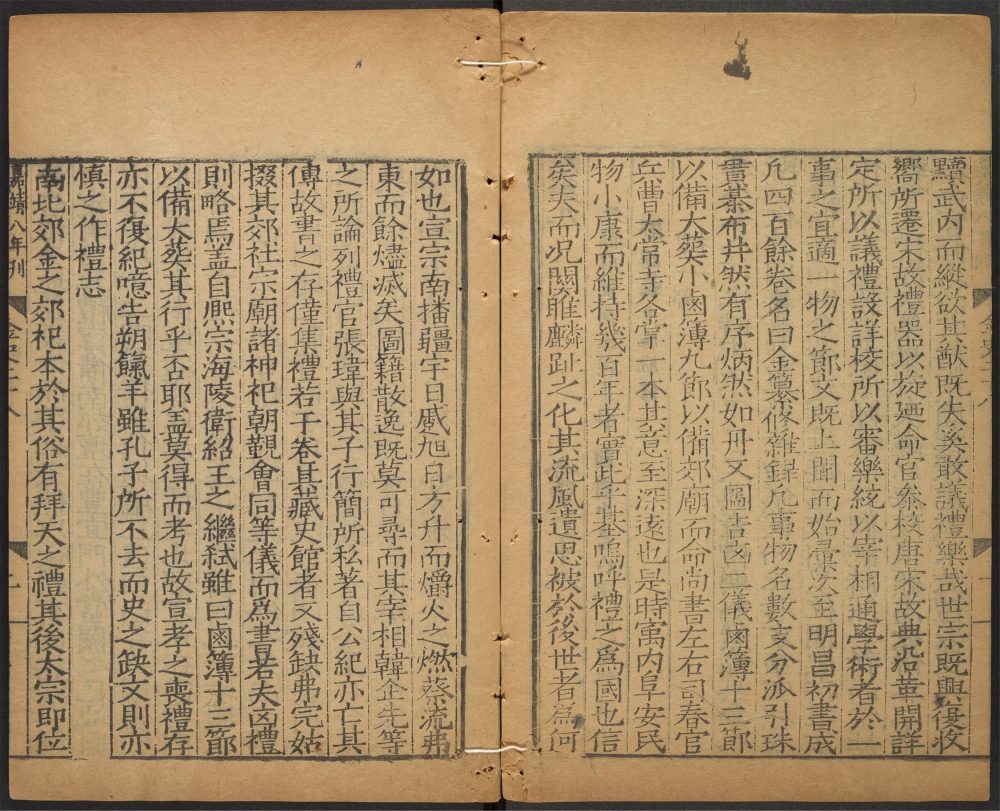 黷武內而縱欲其猷既失奚敢議禮樂哉世宗既興復收
嚮所遷宋故禮器以旋迺命官叅校唐宋故典沿革開詳
定所以議禮設詳校所以審樂統以宰相通學術者於一
事之宜適一物之節文既上聞而始彙次至明昌初書成
凡四百餘卷名曰金纂修雜録凡事物名數支分派引珠
貫綦布井然有序炳然如丹又圖吉凶二儀鹵簿十三節
以備大葬小鹵簿九節以備郊廟而命尚書左右司春官
兵曹太常寺各掌一本其意至深遠也是時寓内阜安民
物小康而維持幾百年者實此乎基嗚呼禮之爲國也信
矣夫而况關雎麟趾之化其流風遺思被於後世者爲何
如也宣宗南播疆宇日蹙旭日方升而爝火之燃蒸流弗
東而餘燼滅矣圖籍散逸既莫可尋而其宰相韓企先等
之所論列禮官張瑋與其子行簡所私著自公紀亦亡其
傳故書之存僅集禮若干卷其藏史館者又殘缺弗完姑
掇其郊社宗廟諸神祀朝覲會同等儀而爲書若夫凶禮
則略焉盖自熈宗海陵衛紹王之繼弑雖曰鹵簿十三節
以備大葬其行乎否耶盖莫得而考也故宣孝之喪禮存
亦不復紀噫告朔餼羊雖孔子所不去而史之缺文則亦
慎之作禮志
南北郊金之郊祀本於其俗有拜天之禮其後太宗即位
嘉靖八年刊